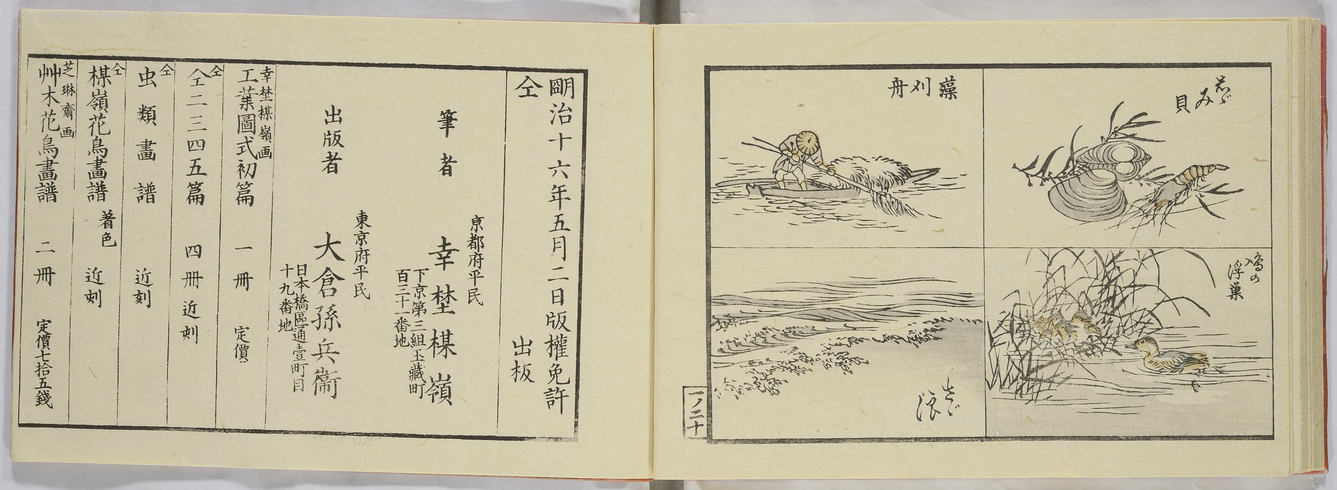 しゞみ貝
藻刈舟
鳰の浮巣
一ノ二十
明治十六年五月二日版權免許
仝 出板
京都府平民
筆者 幸埜楳嶺
下京第三組玉藏町
百三十一番地
東京府平民
出版者 大倉孫兵衞
日本橋區通壹町目
十九番地
幸埜楳嶺画
工業圖式初篇 一冊 定價
仝
仝二三四五篇 四冊 近刻
仝
虫類畫譜 近刻
仝
楳嶺花鳥畫譜 着色 近刻
芝琳齋画
艸木花鳥畫譜 二冊 定價七拾五錢